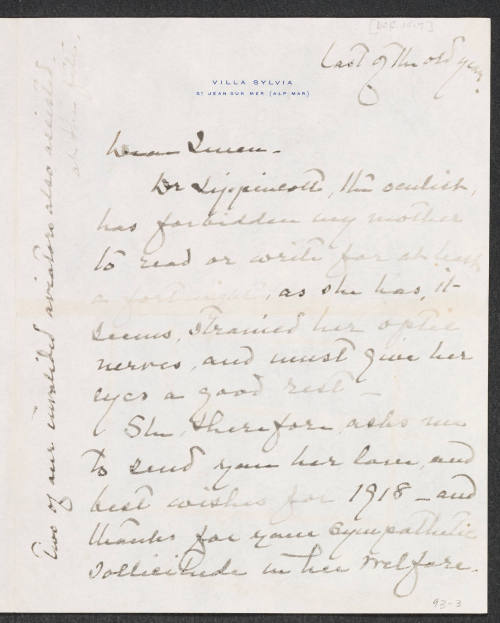 [DEC 1917]
Last of the old year.
VILLA SYLVIA
ST JEAN-SUR MER (ALP-MAR)
Dear
Dr Lippincott, the oculist,
has forbidden my mother
to read or write for at least
a fortnight, as she has, it
seems, strained her optic
nerves, and must give her
eyes a good rest –
She, therefore, asks me
to send you her love, and
best wishes for 1918 – and
thanks for your sympathetic
sollicitude in her welfare.
Two of our invalided aviators also assisted
at the
93-3